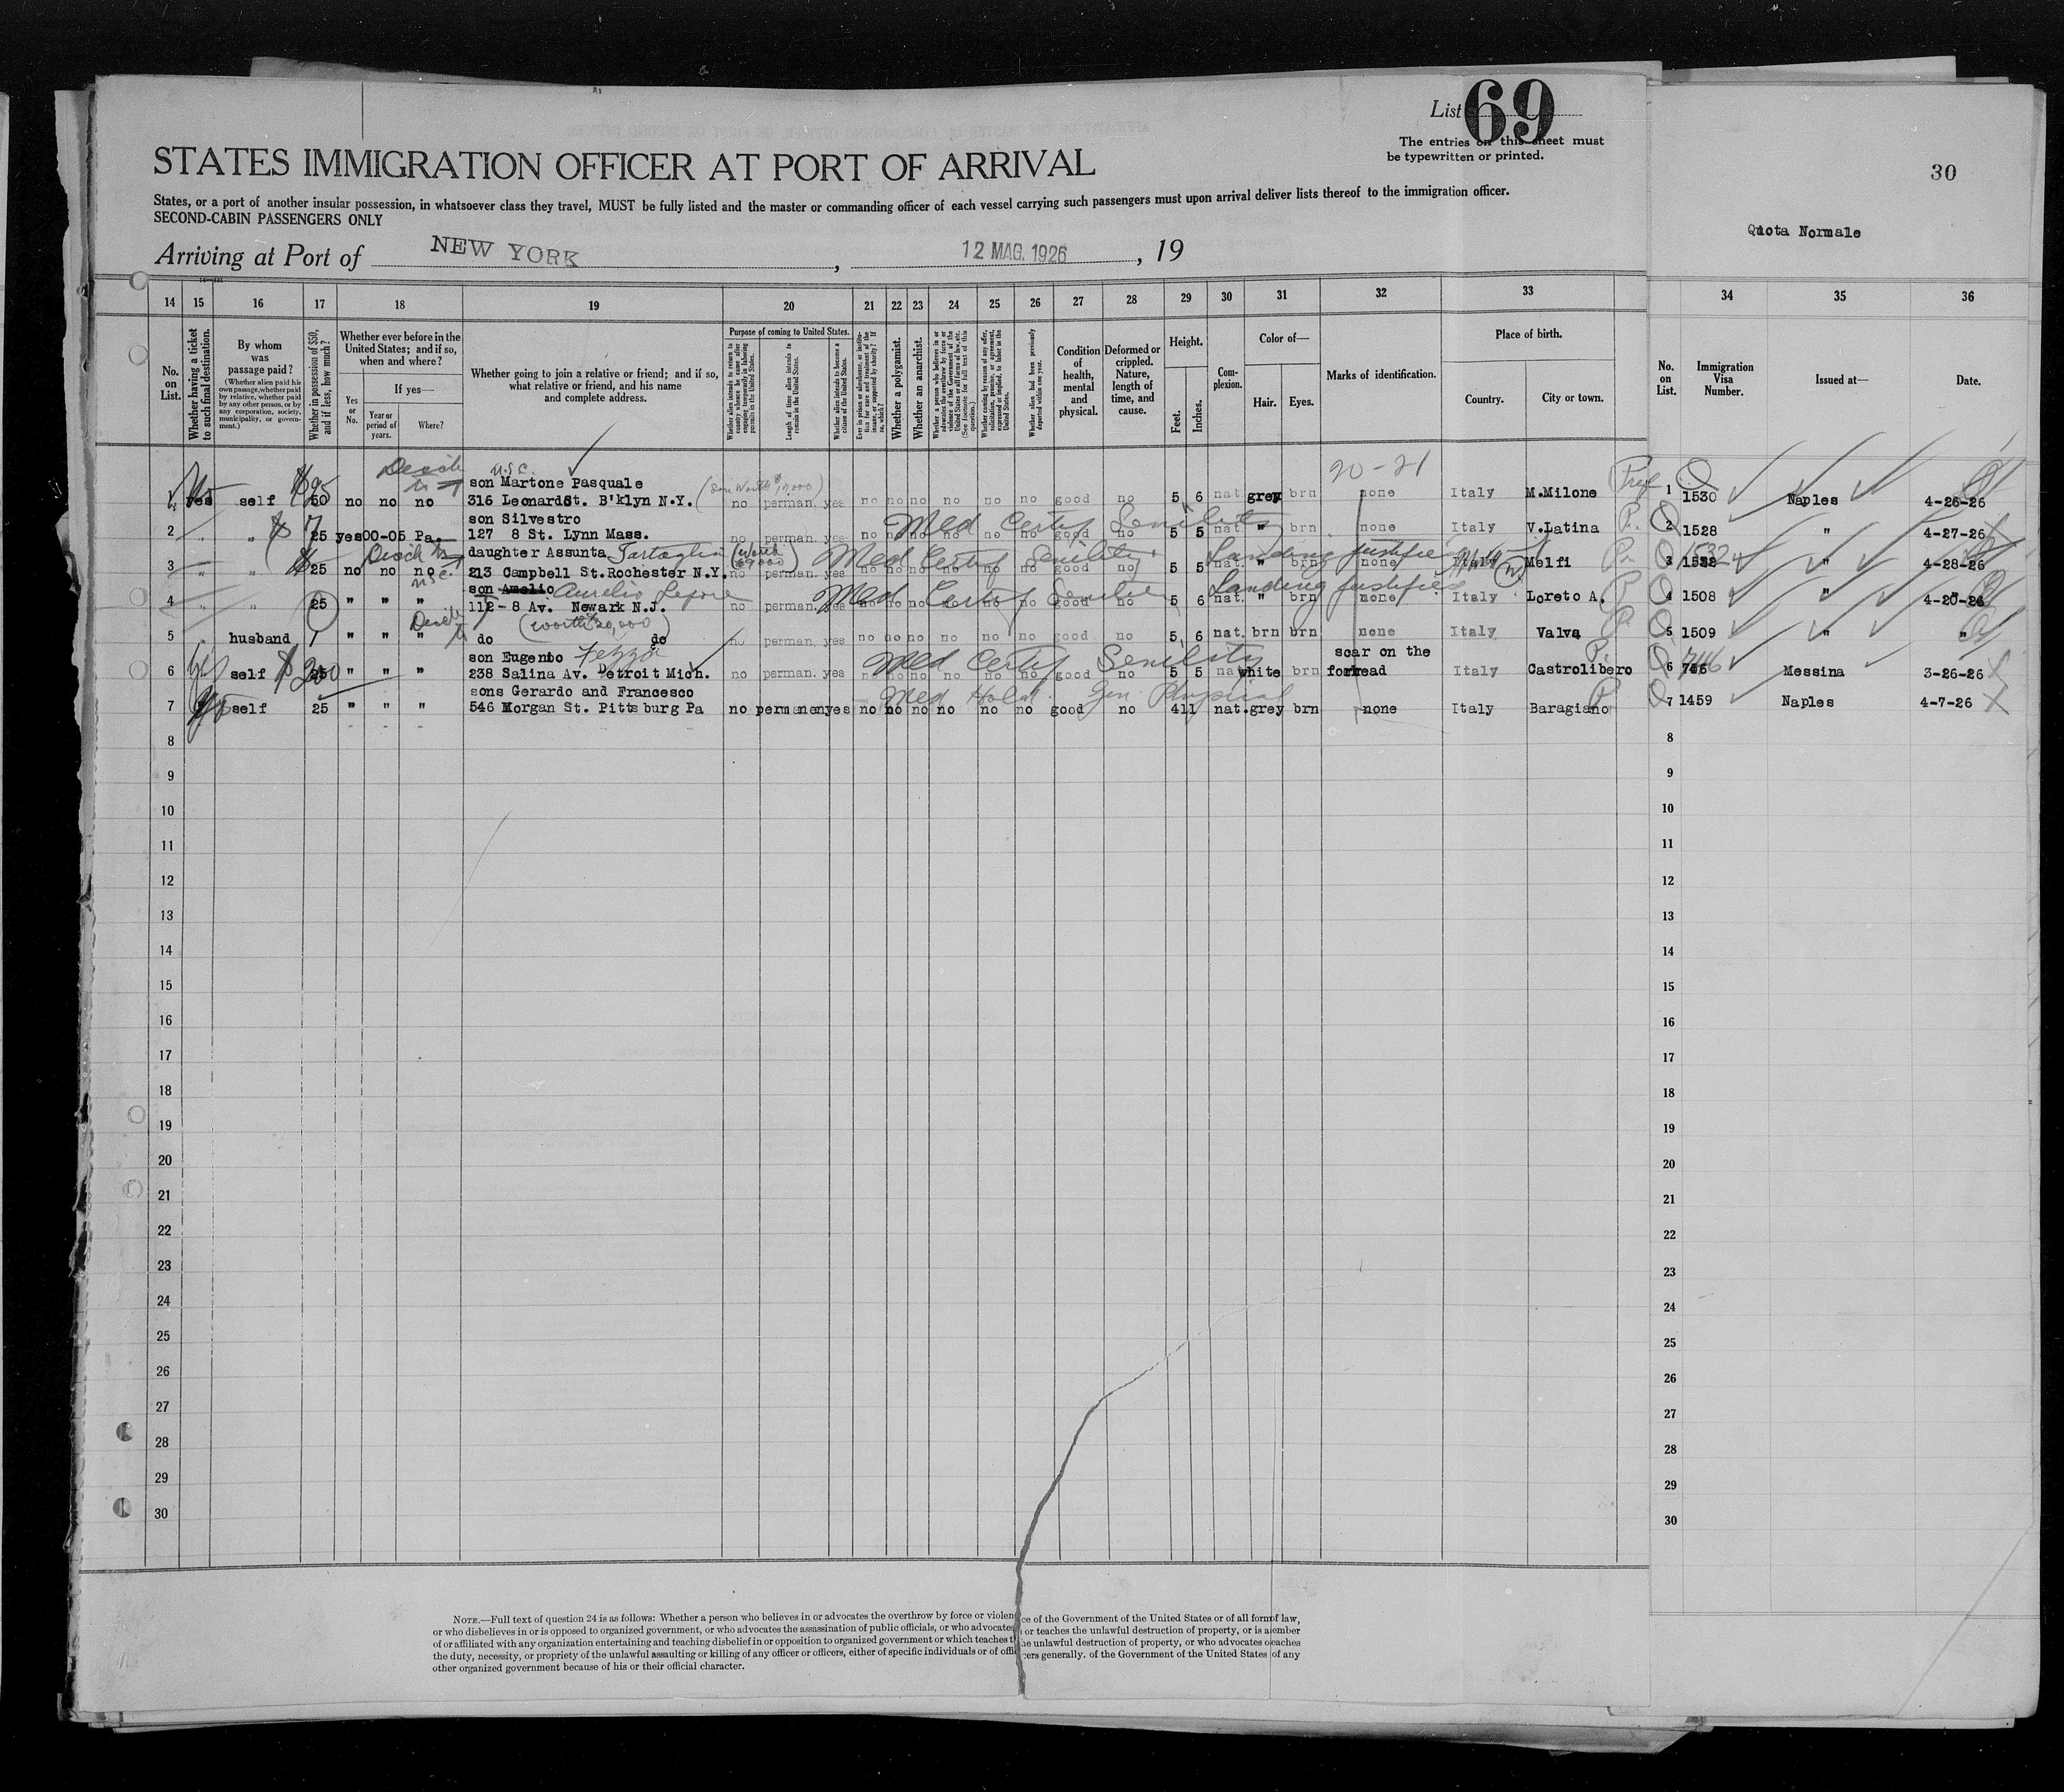 List 69
The entries on this sheet must
be typewritten or printed.
30
STATES IMMIGRATION OFFICER AT PORT OF ARRIVAL
States, or a port of another insular possession, in whatsoever class they travel, MUST be fully listed and the master or commanding officer of each vessel carrying such passengers must upon arrival deliver lists thereof to the immigration officer.
SECOND-CABIN PASSENGERS ONLY
Quota Normale
Arriving at Port of NEW YORK, 12 MAG. 1926, 19
14 15 16 17 18 19 20 21 22 23 24 25 26 27 28 29 30 31 32 33 34 35 36
No. on List.
Whether having a ticket to such final destination.
By whom was passage paid?
(Whether alien paid his own passage, whether paid by relative, whether paid by any other person, or by any corporation, society, municipality, or government.)
Whether in possession of $50, and if less, how much?
Whether ever before in the United States; and if so, when and where?
Yes or No.
If yes—
Year or period of years.
Where?
Whether going to join a relative or friend; and if so, what relative or friend, and his name and complete address.
Purpose of coming to United States.
Whether alien intends to return to country whence he came after engaging temporarily in laboring pursuits in the United States.
Length of time alien intends to remain in the United States.
Whether alien intends to become a citizen of the United States.
Whether a polygamist.
Whether an anarchist.
Condition of health, mental and physical.
Deformed or crippled. Nature, length of time, and cause.
Height.
Feet.
Inches.
Complexion.
Color of—
Hair.
Eyes.
Marks of identification.
Place of birth.
Country.
City or town.
No. on List.
Immigration Visa Number.
Issued at—
Date.
20-21
U.S.C.
son Martone Pasquale
1 yes self 50 no no no 316 Leonard St. B'klyn N.Y. no perman. yes no no no no no no good no 5 6 nat. grey brn none Italy M.Milone 1 1530 Naples 4-26-26
son Silvestro Med Certif Senility
2 " " 25 yes 00-05 Pa. 127 8 St. Lynn Mass. no perman. yes no no no no no no good no 5 5 nat. " brn none Italy V.Latina 2 1528 " 4-27-26
daughter Assunta Tartaglia Med Certif Senility Landing justified
3 " " 25 no no no 213 Campbell St.Rochester N.Y. no perman. yes no no no no no no good no 5 5 nat. " brn none Italy Melfi 3 1532 " 4-28-26
son Amelio Aurelio Lepore Med Certif Senile Landing justified
4 " " 25 " " " 112 - 8 Av. Newark N.J. no perman. yes no no no no no no good no 5 6 nat. " brn none Italy Loreto A. 4 1508 " 4-20-26
(worth $20,000)
5 husband " " " do do no perman. yes no no no no no no good no 5 6 nat. brn brn none Italy Valva 5 1509 " "
son Eugenio Med Certif Senility scar on the
6 self 25 " " " 238 Salina Av. Detroit Mich. no perman. yes no no no no no no good no 5 5 nat white brn forhead Italy Castrolibero 6 746 Messina 3-26-26
sons Gerardo and Francesco Med Hold Gen. Physical
7 self 25 " " " 546 Morgan St. Pittsburg Pa no permanen yes no no no no no no good no 4 11 nat. grey brn none Italy Baragiano 7 1459 Naples 4-7-26
8 8
9 9
10 10
11 11
12 12
13 13
14 14
15 15
16 16
17 17
18 18
19 19
20 20
21 21
22 22
23 23
24 24
25 25
26 26
27 27
28 28
29 29
30 30
NOTE.—Full text of question 24 is as follows: Whether a person who believes in or advocates the overthrow by force or violence of the Government of the United States or of all form of law,
or who disbelieves in or is opposed to organized government, or who advocates the assassination of public officials, or who advocates or teaches the unlawful destruction of property, or is a member
of or affiliated with any organization entertaining and teaching disbelief in or opposition to organized government or which teaches the unlawful destruction of property, or who advocates or teaches
the duty, necessity, or propriety of the unlawful assaulting or killing of any officer or officers, either of specific individuals or of officers generally, of the Government of the United States of any
other organized government because of his or their official character.